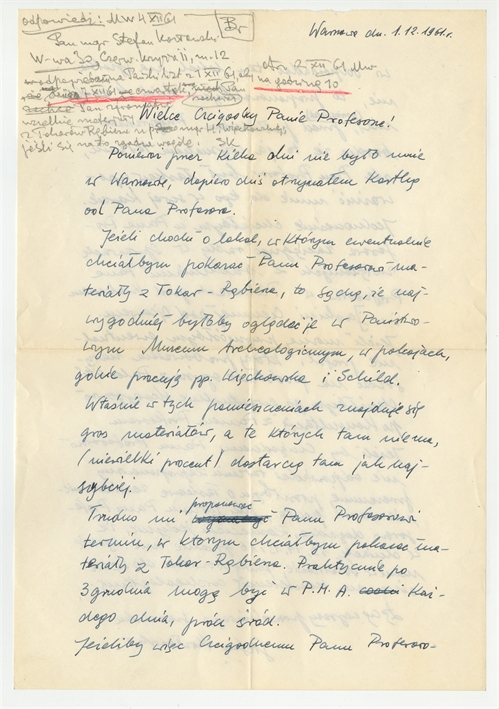 odpowiedź: MW 4 XII 61
Br
Pan mgr Stefan Kozłowski
W-wa 30, Czerw. Krzyża 11, m. 12
Warszawa dn. 1.12.1961r.
2 XII 61 MW
Pański list z 1 XII 61
7 XII 61 na godzinę 10
Pan
wszelkie materiały
z Tokar Rębiere u H. Więckowskiej
jeśli się na to zgodzi SK
Wielce Czcigodny Panie Profesorze!
Ponieważ przez kilka dni nie było mnie
w Warszawie, dopiero dziś otrzymałem kartkę
od Pana Profesora.
Jeżeli chodzi o lokal, w którym ewentualnie
chciałbym pokazać Panu Profesorowi ma-
teriały z Tokar-Rębiera, to sądzę, że naj-
wygodniej byłoby oglądać je w Państwo-
wym Muzeum Archeologicznym, w pokojach,
gdzie pracują pp. Więckowska i Schild.
Właśnie w tych pomieszczeniach znajduje się
gros materiałów, a te których tam nie ma,
(niewielki procent) dostarczę tam jak naj-
szybciej.
Trudno mi proponować Panu Profesorowi
termin, w którym chciałbym pokazać ma-
teriały z Tokar-Rębiera. Praktycznie po
3 grudnia mogę być w P.M.A. każ-
dego dnia, prócz śród.
Jeżeliby więc Czcigodnemu Panu Profesoro-